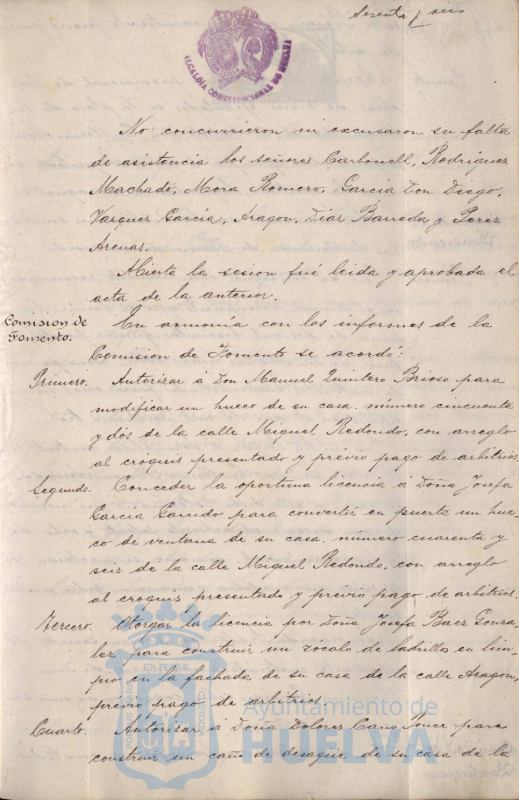 Sesenta y seis
ALCALDIA CONSTITUCIONAL DE HUELVA
No concurrieron ni excusaron su falta
de asistencia los señores Carbonell, Rodriguez
Machado, Mora Romero, Garcia Don Diego,
Vazquez Garcia, Aragon, Diaz Barreda y Perez
Arenas.
Abierta la sesion fué leida y aprobada el
acta de la anterior.
Comision de
Fomento.
En armonía con los informes de la
Comision de Fomento se acordó:
Primero. Autorizar á Don Manuel Quintero Brioso para
modificar un hueco de su casa número cincuenta
y dos de la calle Miguel Redondo, con arreglo
al cróquis presentado y prévio pago de arbitrios.
Segundo. Conceder la oportuna licencia á Doña Josefa
Garcia Garrido para convertir en puerta un hue-
co de ventana de su casa número cuarenta y
seis de la calle Miguel Redondo, con arreglo
al croquis presentado y prévio pago de arbitrios.
Tercero. Otorgar la licencia por Doña Josefa Baez Gonza
lez para construir un zocalo de ladrillos en lim-
pio en la fachada de su casa de la calle Aragon,
prévio pago de arbitrios.
Cuarto. Autorizar á Doña Dolores Cano Ponce para
construir un caño de desagüe de su casa de la
Ayuntamiento de
HUELVA